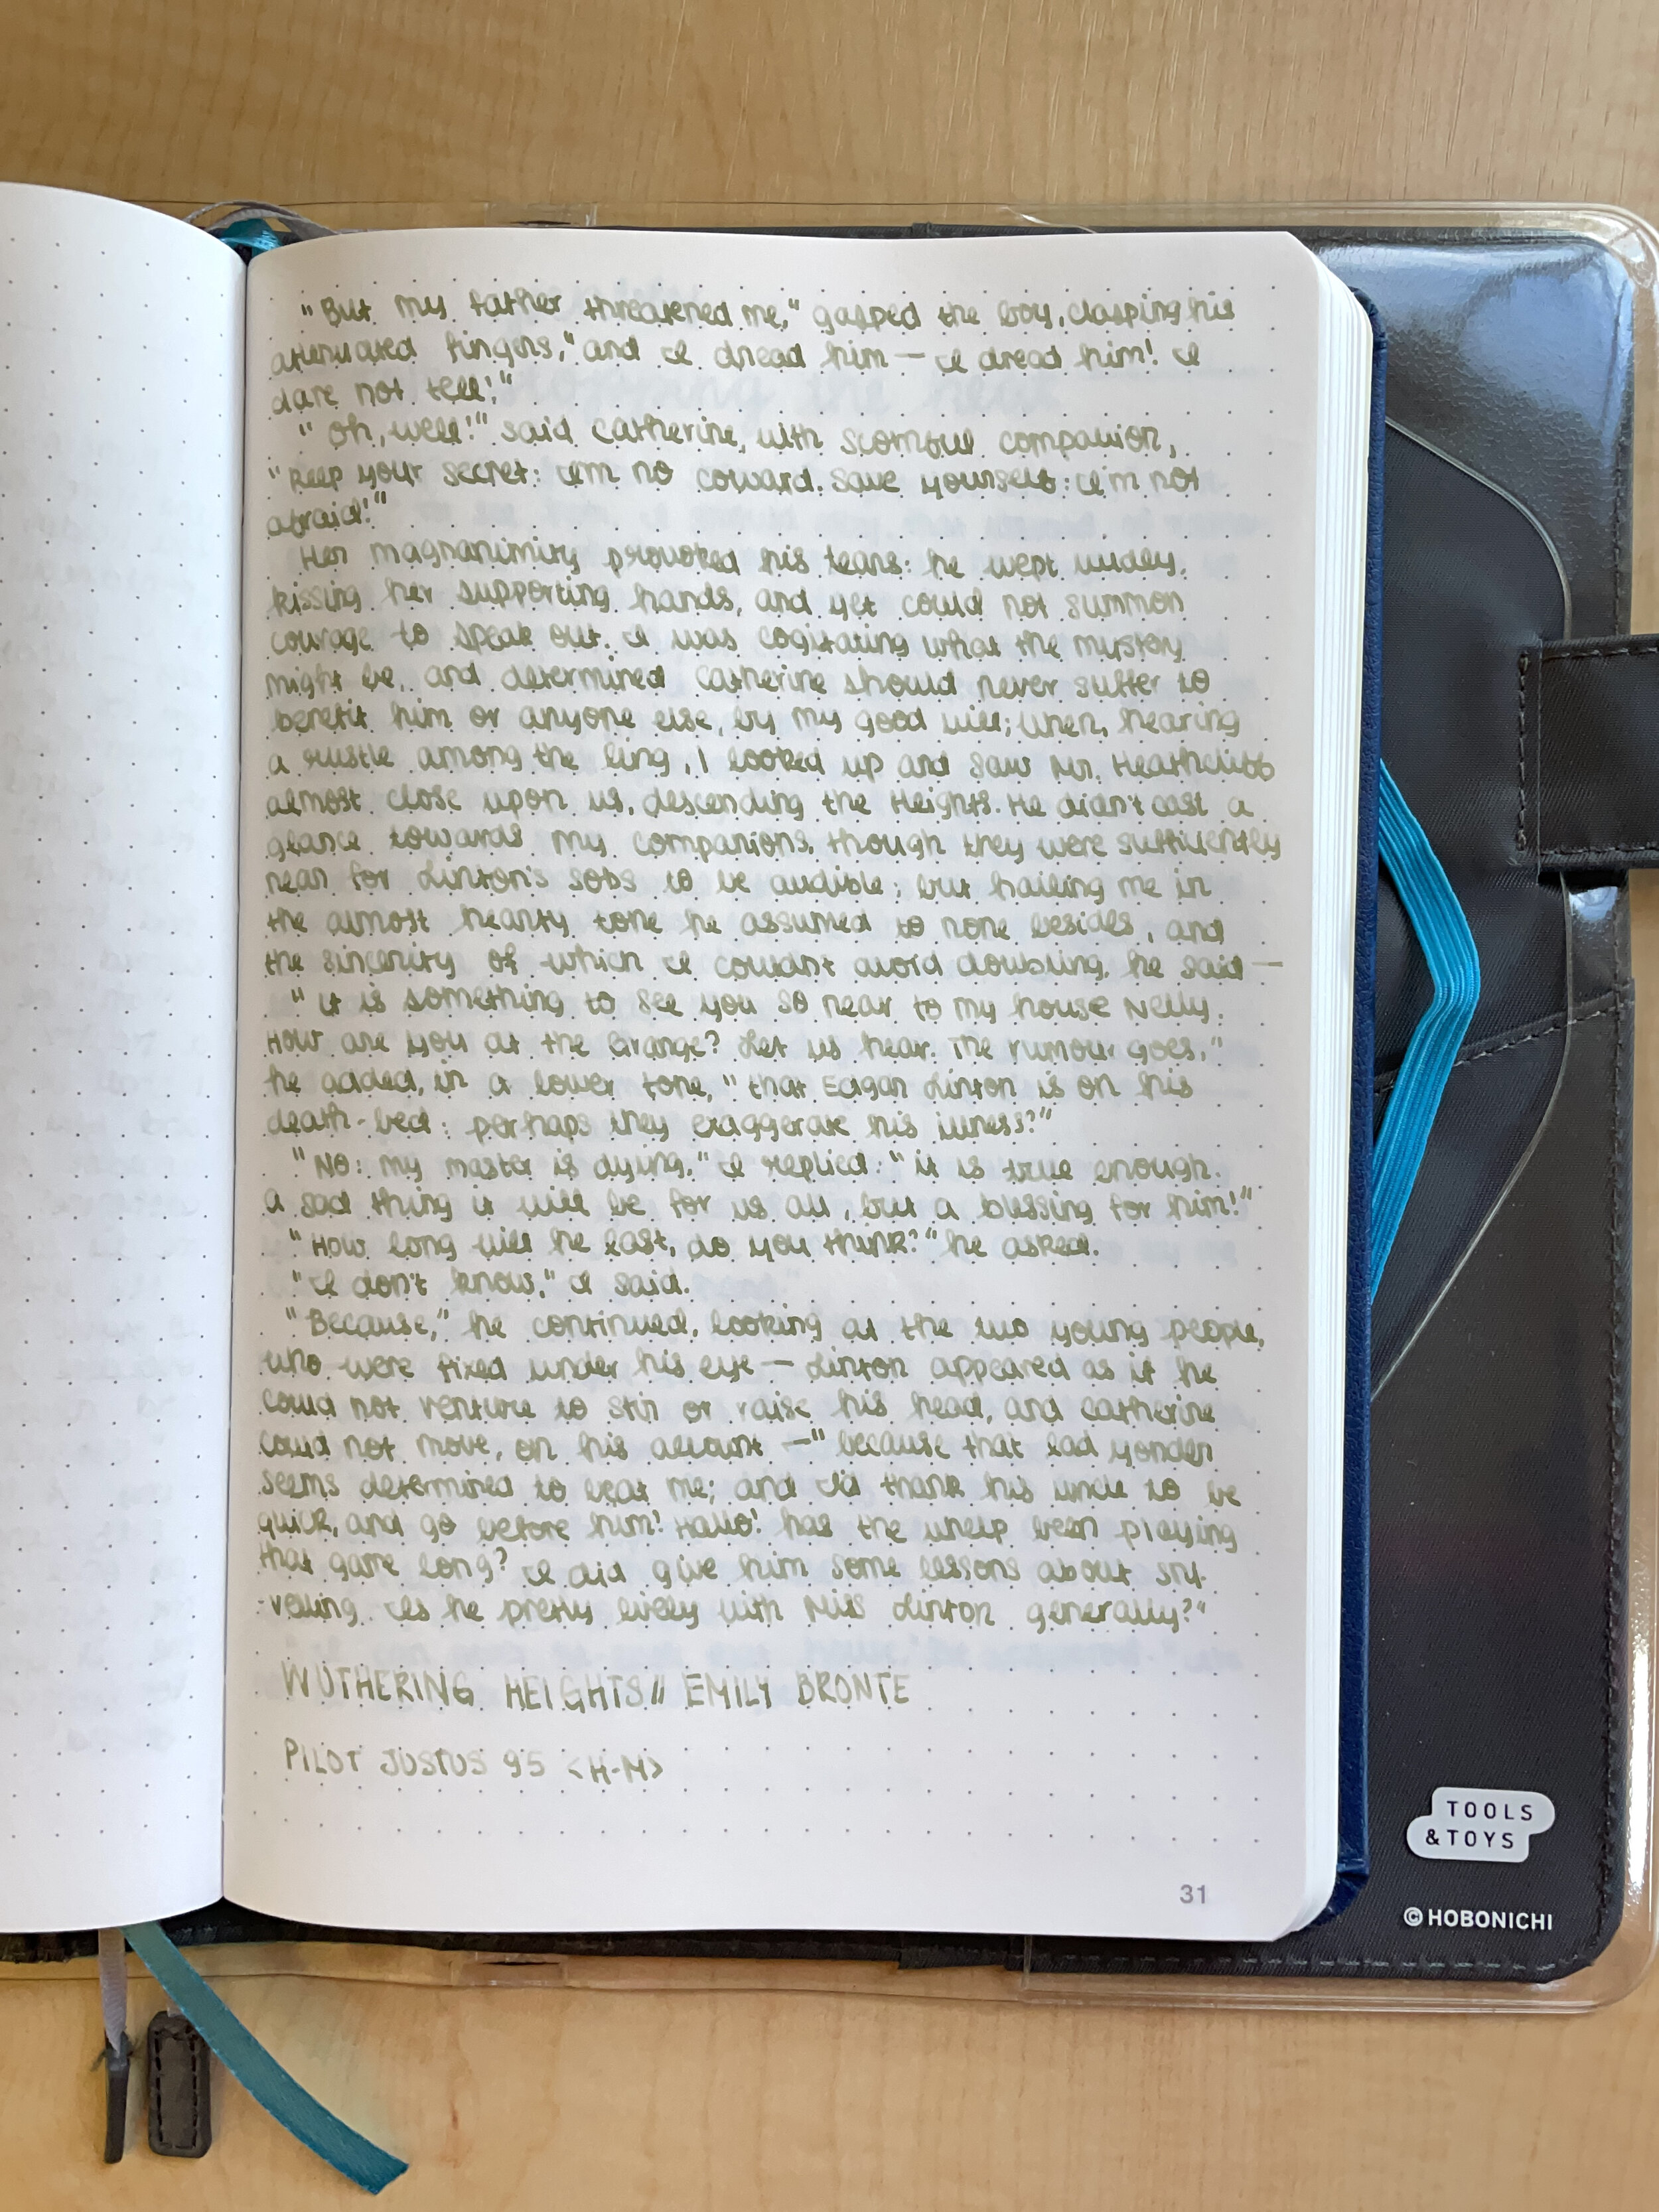 "But my father threatened me," gasped the boy, clasping his
attenuated fingers, "and I dread him — I dread him! I
dare not tell!"
"Oh, well!" said Catherine, with scornful compassion,
"keep your secret: I'm no coward. Save yourself: I'm not
afraid!"
Her magnanimity provoked his tears: he wept wildly,
kissing her supporting hands, and yet could not summon
courage to speak out. I was cogitating what the mystery
might be, and determined Catherine should never suffer to
benefit him or anyone else, by my good will; when, hearing
a rustle among the ling, I looked up and saw Mr. Heathcliff
almost close upon us, descending the Heights. He didn't cast a
glance towards my companions, though they were sufficiently
near for Linton's sobs to be audible; but hailing me in
the almost hearty tone he assumed to none besides, and
the sincerity of which I couldn't avoid doubting, he said —
"It is something to see you so near to my house Nelly.
How are you at the Grange? Let us hear. The rumour goes,"
he added, in a lower tone, "that Edgar Linton is on his
death-bed: perhaps they exaggerate his illness?"
"No: my master is dying," I replied: "it is true enough.
A sad thing it will be for us all, but a blessing for him!"
"How long will he last, do you think?" he asked.
"I don't know," I said.
"Because," he continued, looking at the two young people,
who were fixed under his eye — Linton appeared as if he
could not venture to stir or raise his head, and Catherine
could not move, on his account —" because that lad yonder
seems determined to beat me; and I'd thank his uncle to be
quick, and go before him! Hallo! has the whelp been playing
that game long? I did give him some lessons about sni-
velling. Is he pretty lively with Miss Linton generally?"
WUTHERING HEIGHTS // EMILY BRONTE
PILOT JUSTUS 95 <H-M>
31
TOOLS
& TOYS
© HOBONICHI